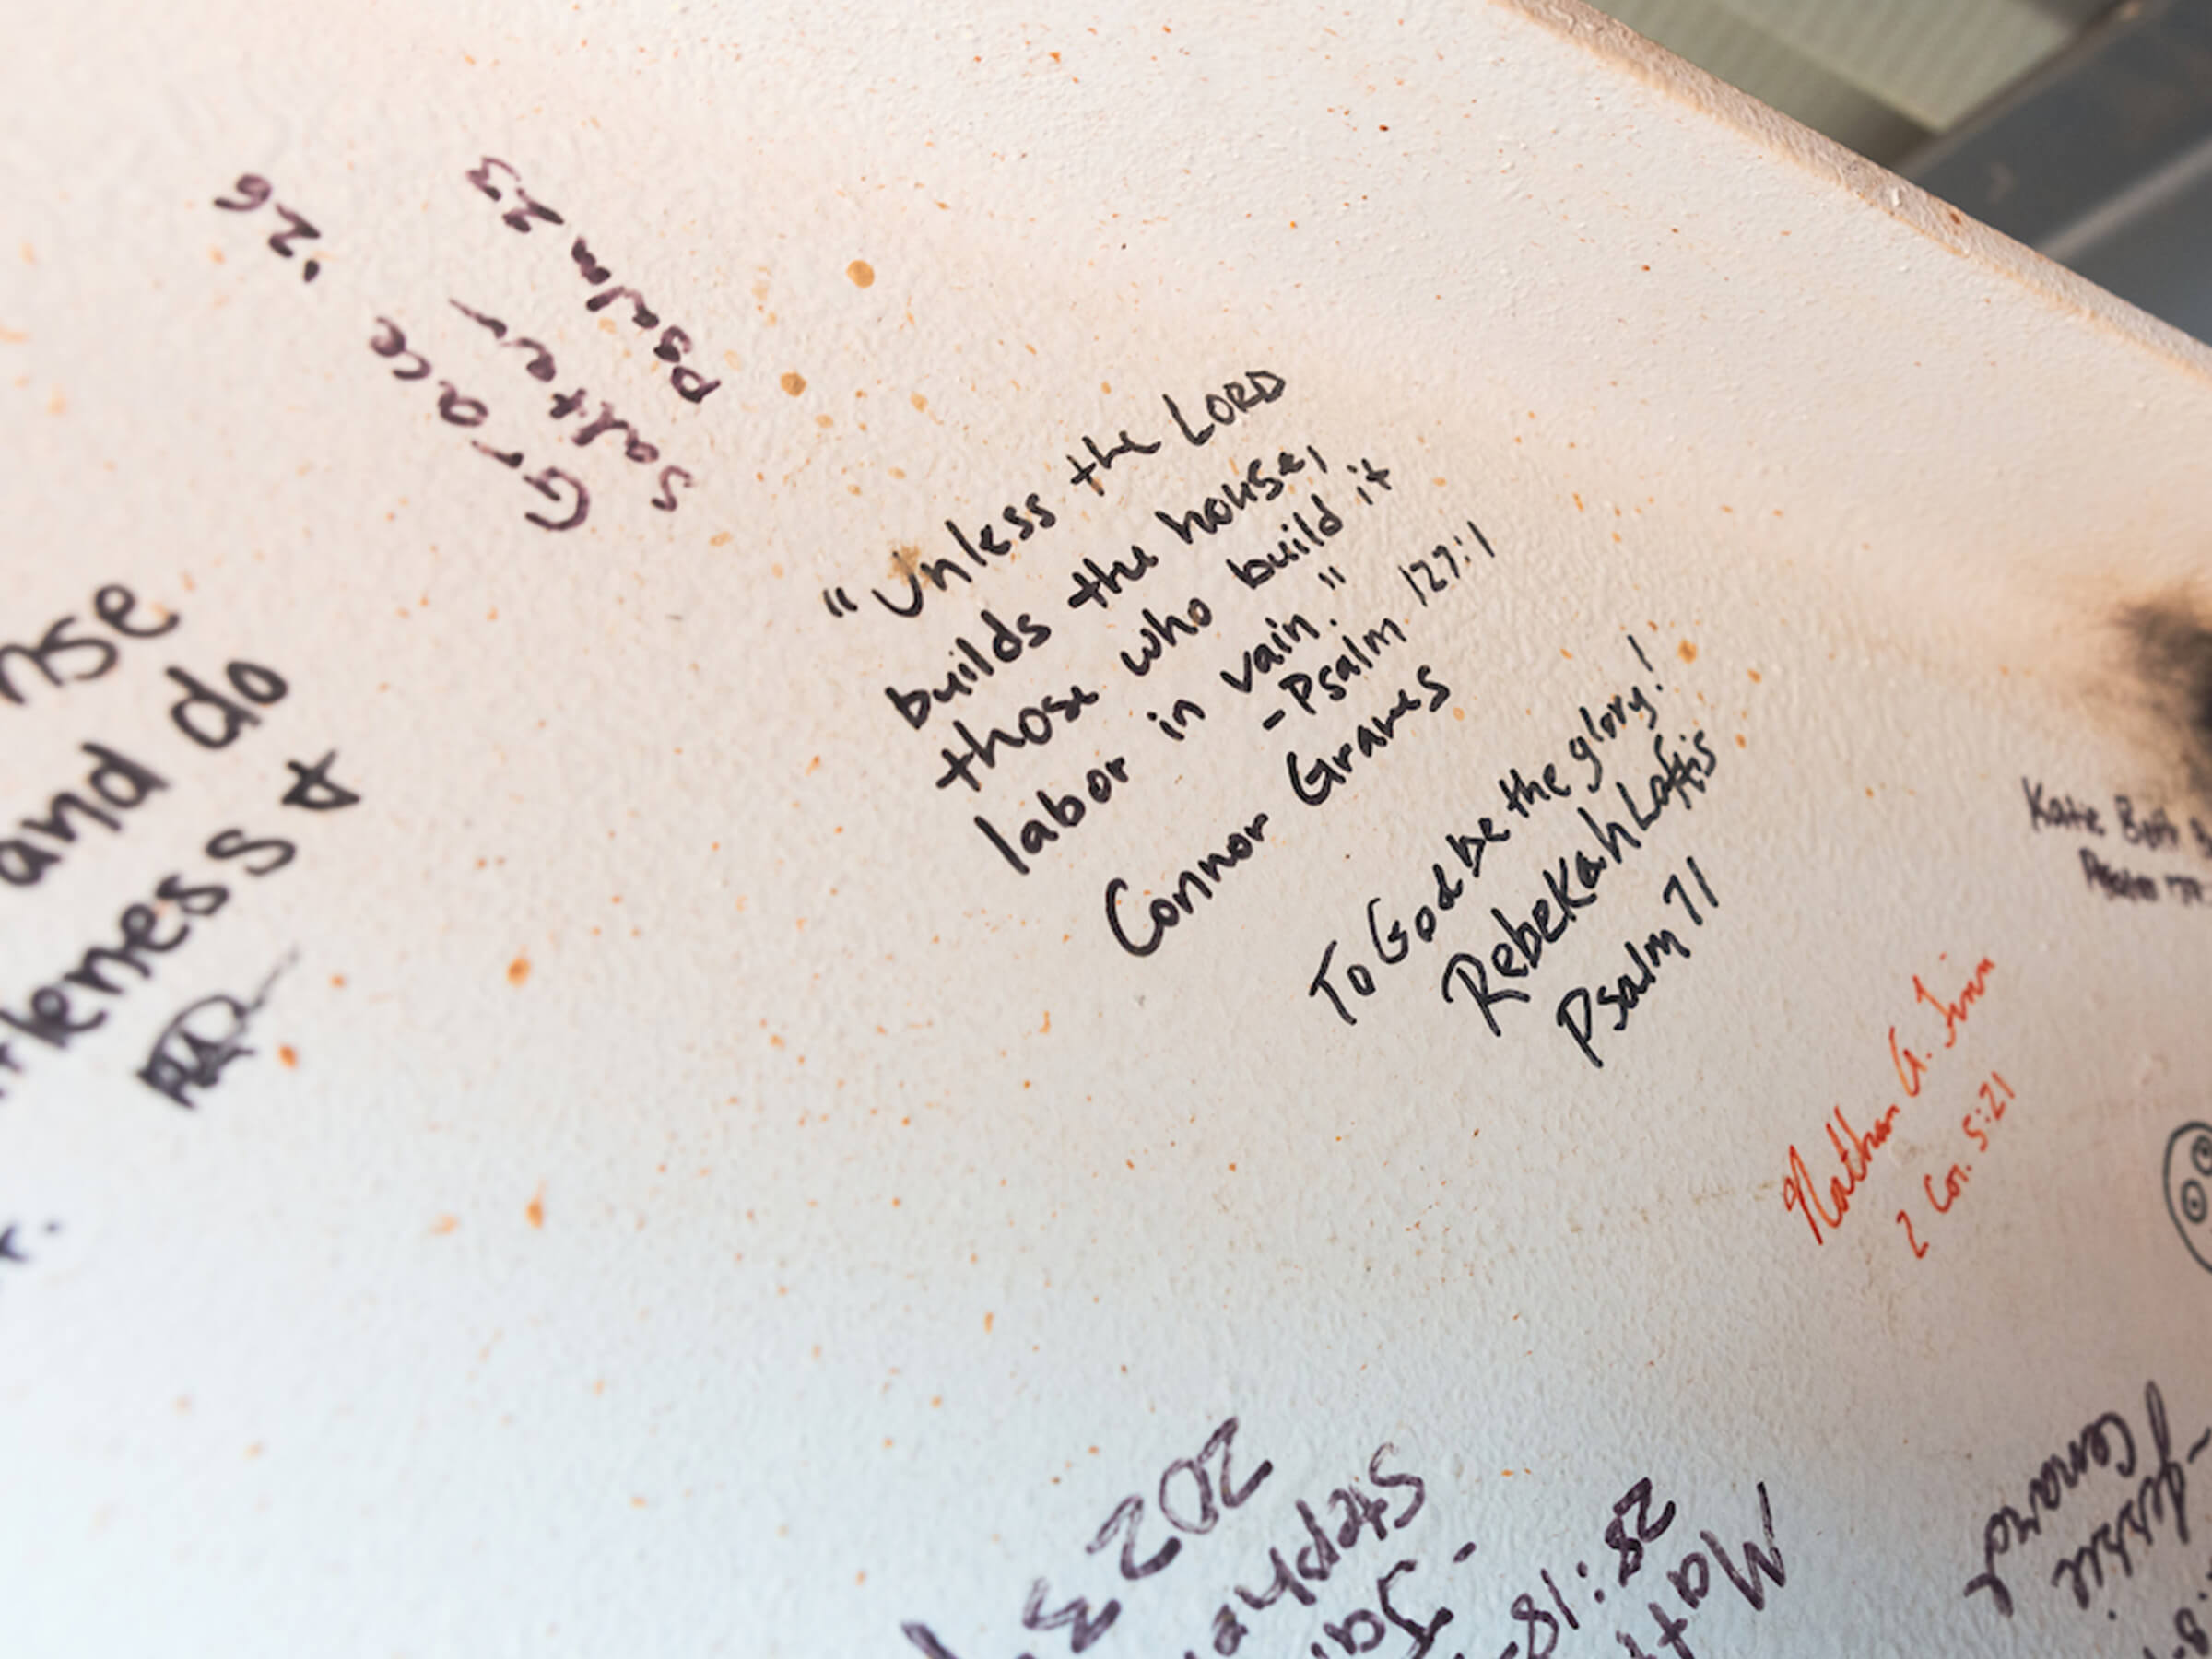 Grace '26
Salter
Psalm 23
nse
and do
tleness &
"Unless the LORD
builds the house,
those who build it
labor in vain."
-Psalm 127:1
Connor Graves
To God be the glory!
Rebekah Loftis
Psalm 71
Katie Beth
Psalm
Nathan G.
2 Cor. 5:21
2023
Stephe
28:18-
Matt
-Jessie
Cemona